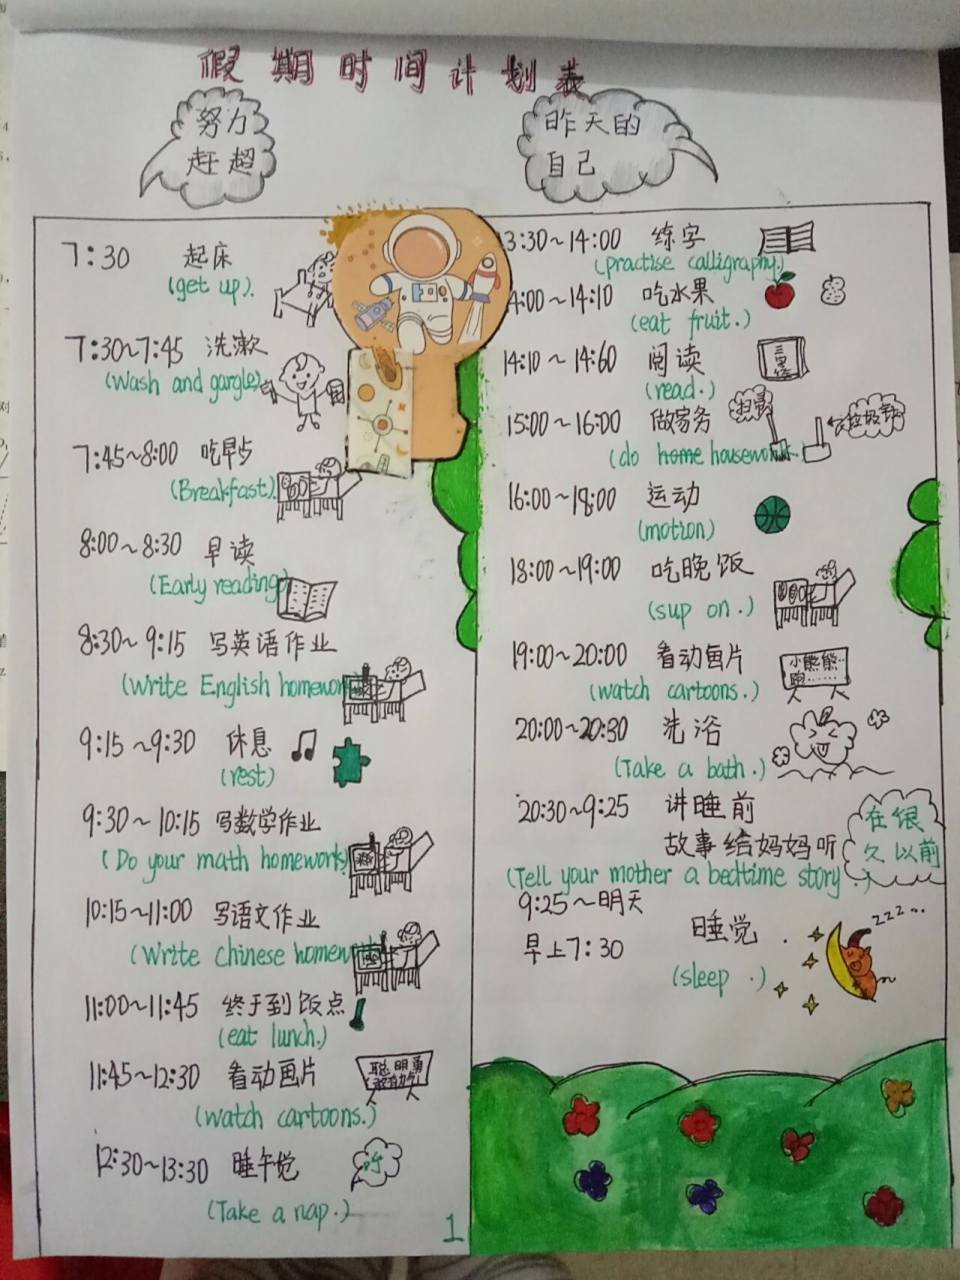 假期时间计划表
努力
赶超
昨天的
自己
7:30 起床
(get up).
7:30~7:45 洗漱
(Wash and gargle)
7:45~8:00 吃早歺
(Breakfast).
8:00~8:30 早读
(Early reading)
8:30~9:15 写英语作业
(Write English homework
9:15~9:30 休息
(rest)
9:30~10:15 写数学作业
(Do your math homework)
10:15~11:00 写语文作业
(Write chinese homew
11:00~11:45 终于到饭点
(eat lunch.)
11:45~12:30 看动画片
聪明勇
(watch cartoons.)
12:30~13:30 睡午觉
(Take a nap.)
1
3:30~14:00 练字
(practise calligraphy.)
4:00~14:10 吃水果
(eat fruit.)
14:10~14:60 阅读
(read.)
三字经
15:00~16:00 做家务
(do home housework.
16:00~18:00 运动
(motion)
18:00~19:00 吃晚饭
(sup on.)
19:00~20:00 看动画片
小熊熊..
跑......
(watch cartoons.)
20:00~20:30 洗浴
(Take a bath.)
20:30~9:25 讲睡前
故事给妈妈听
在很
久以前
(Tell your mother a bedtime story.)
9:25~明天
早上7:30 睡觉
zzz...
(sleep.)